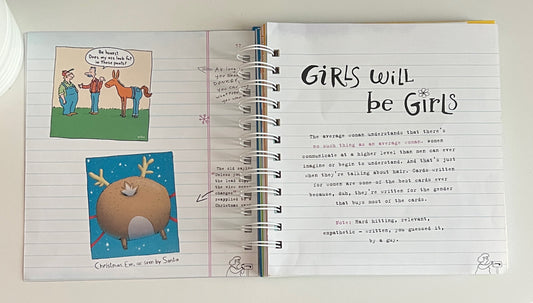 Be honest!
Does my ass look fat
in these pants?
As long
you
DONKEY
you can
The old saying
Unless you
the lead
changes"
reapplies to
Christmas
Christmas Eve, as seen by Santa
GiRLS WiLL
be GiRLS
The average woman understands that there's
no such thing as an average woman. Women
communicate at a higher level than men can ever
imagine or begin to understand. And that's just
when they're talking about hair. Cards written
for women are some of the best cards ever
because, duh, they're written for the gender
that buys most of the cards.
Note: Hard hitting, relevant,
empathetic – written, you guessed it,
by a guy.